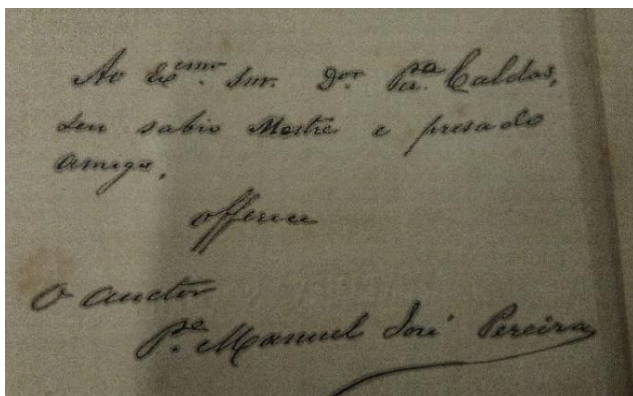 Ao Exᵐᵒ. Snr. Dᵒʳ Pᵃ. Caldas,
seu sabio Mestre e presado
amigo,
offerece
O auctor
Pᵉ. Manuel José Pereira